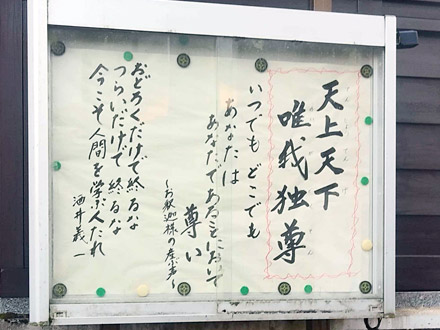 天上天下
唯我独尊
いつでも どこでも
あなたは
あなたであることにおいて
尊い
〜お釈迦様の産声〜
おどろくだけで終るな
つらいだけで終るな
今こそ人間を学ぶ人たれ
酒井義一